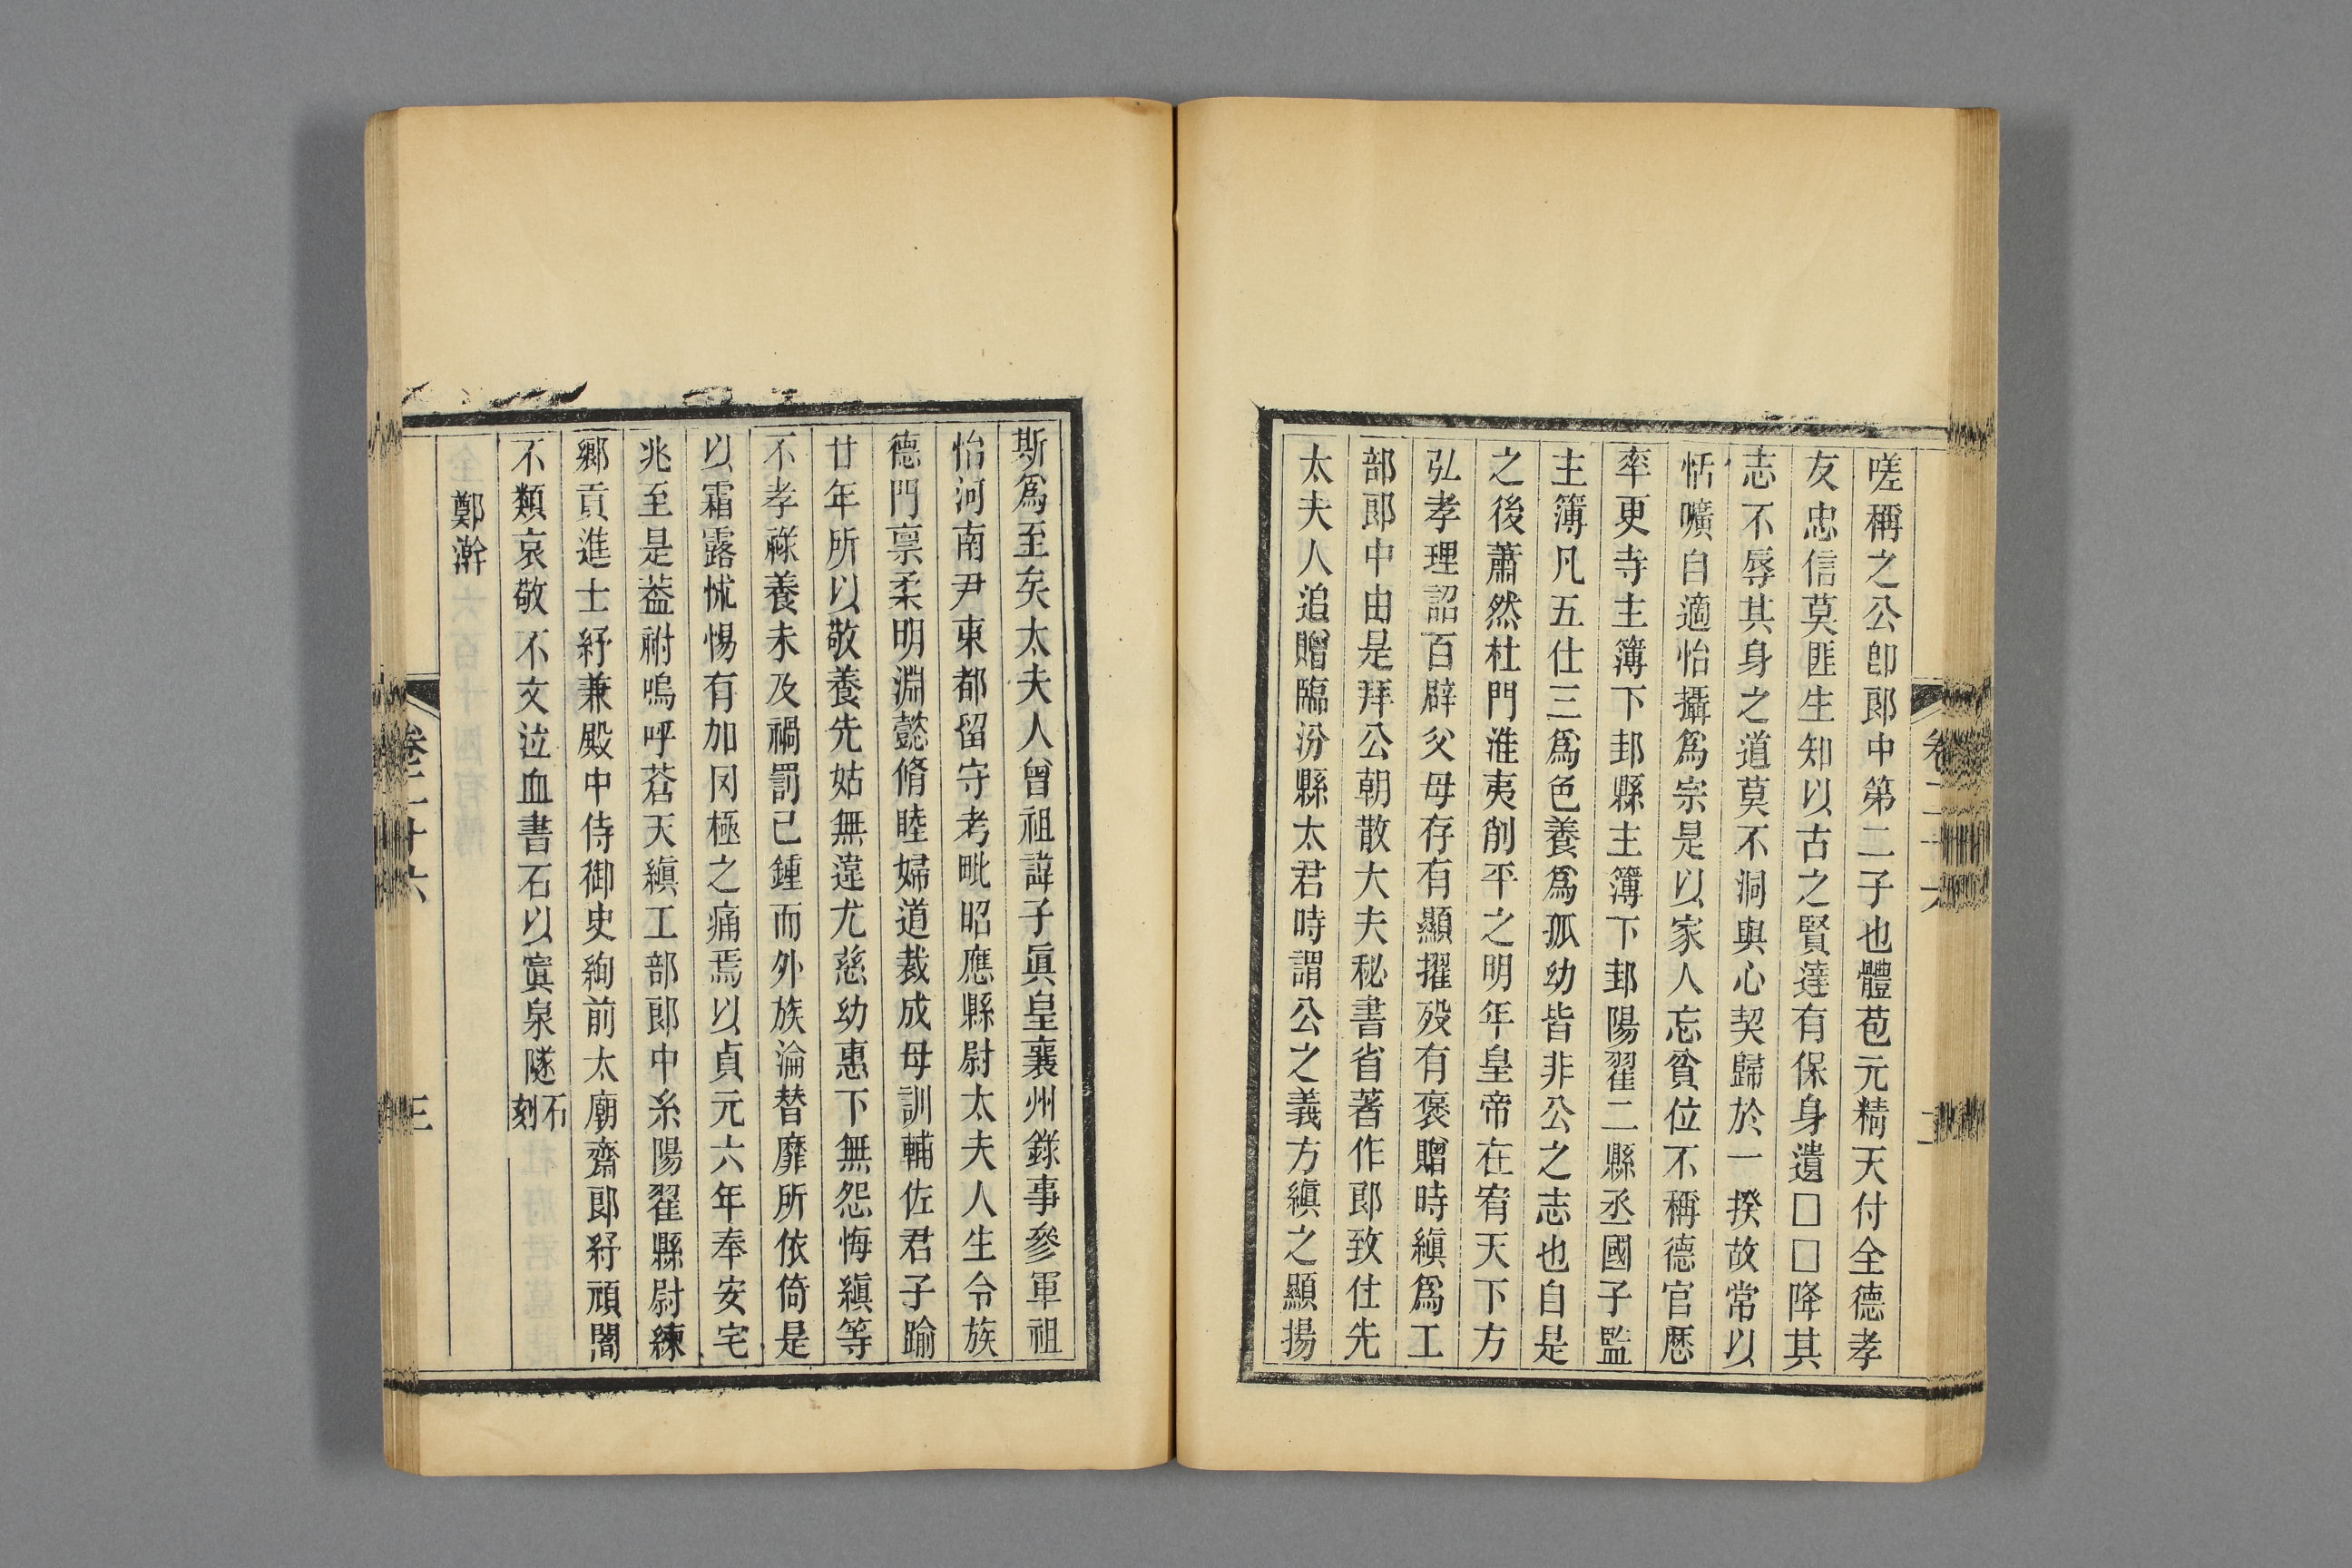 嗟稱之公卽郞中第二子也體苞元精天付全德孝
友忠信莫匪生知以古之賢達有保身遺□□降其
志不辱其身之道莫不洞與心契歸於一揆故常以
恬曠自適怡攝爲宗是以家人忘貧位不稱德官歷
率更寺主簿下邽縣主簿下邽陽翟二縣丞國子監
主簿凡五仕三爲色養爲孤幼皆非公之志也自是
之後蕭然杜門淮夷削平之明年皇帝在宥天下方
弘孝理詔百辟父母存有顯擢歿有褒贈時縝爲工
部郞中由是拜公朝散大夫秘書省著作郞致仕先
太夫人追贈臨汾縣太君時謂公之義方縝之顯揚
斯爲至矣太夫人曾祖諱子眞皇襄州錄事參軍祖
怡河南尹東都留守考毗昭應縣尉太夫人生令族
德門禀柔明淵懿脩睦婦道裁成母訓輔佐君子踰
廿年所以敬養先姑無違尤慈幼惠下無怨悔縝等
不孝祿養未及禍罰已鍾而外族淪替靡所依倚是
以霜露怵惕有加罔極之痛焉以貞元六年奉安宅
兆至是葢祔嗚呼蒼天縝工部郞中系陽翟縣尉練
鄕貢進士紓兼殿中侍御史絢前太廟齋郞紆頑闇
不類哀敬不文泣血書石以寘泉隧石刻
鄭澣
卷二十六
三